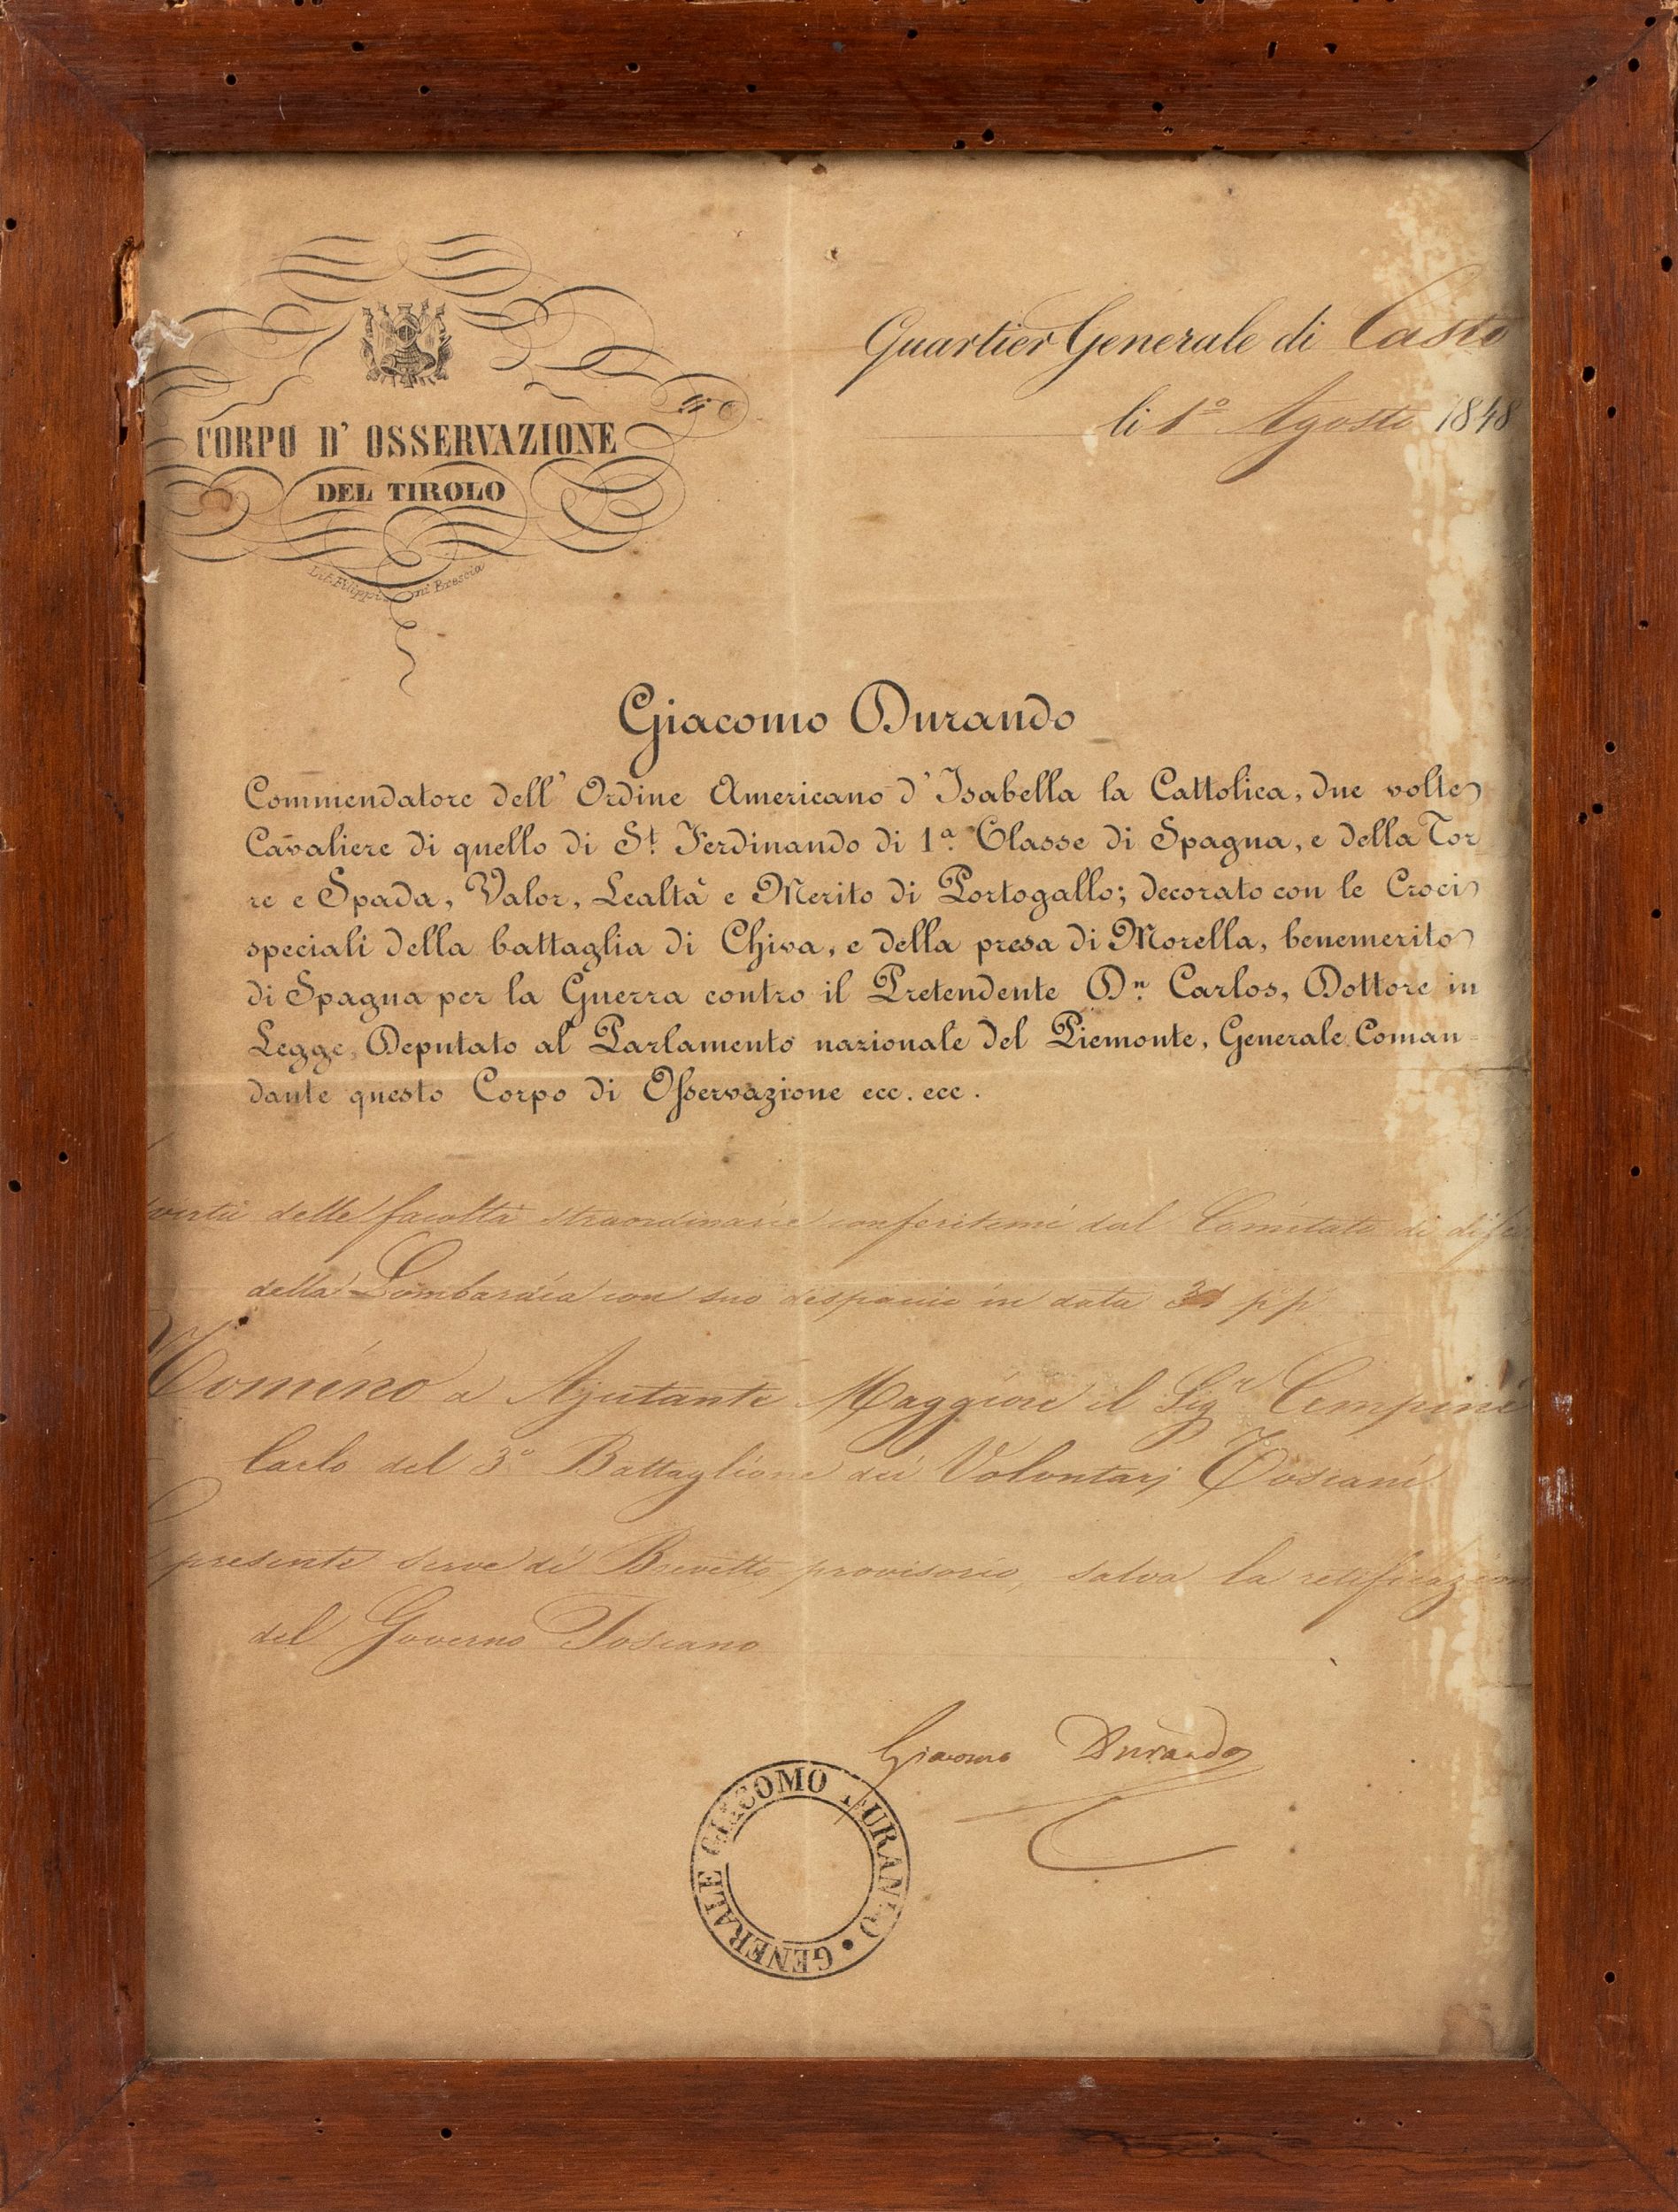 Quartier Generale di Casto
li 1º Agosto 1848
CORPO D' OSSERVAZIONE
DEL TIROLO
Lit. Filippini Brescia
Giacomo Durando
Commendatore dell' Ordine Americano d' Isabella la Cattolica, due volte
Cavaliere di quello di St. Ferdinando di 1ª. Classe di Spagna, e della Tor
re e Spada, Valor, Lealtà e Merito di Portogallo; decorato con le Croci
speciali della battaglia di Chiva, e della presa di Morella, benemerito
di Spagna per la Guerra contro il Pretendente Dn. Carlos, Dottore in
Legge, Deputato al Parlamento nazionale del Piemonte, Generale Coman=
dante questo Corpo di Osservazione ecc. ecc.
virtù delle facoltà straordinarie conferitemi dal Comitato di difes
della Lombardia con suo dispaccio in data 31 pp
Nomino a Ajutante Maggiore il Sigr Cempini
Carlo del 3º Battaglione dei Volontarj Toscani
presente serve di Brevetto provvisorio, salva la retificazion
del Governo Toscano
Giacomo Durando
GENERALE GIACOMO DURANDO